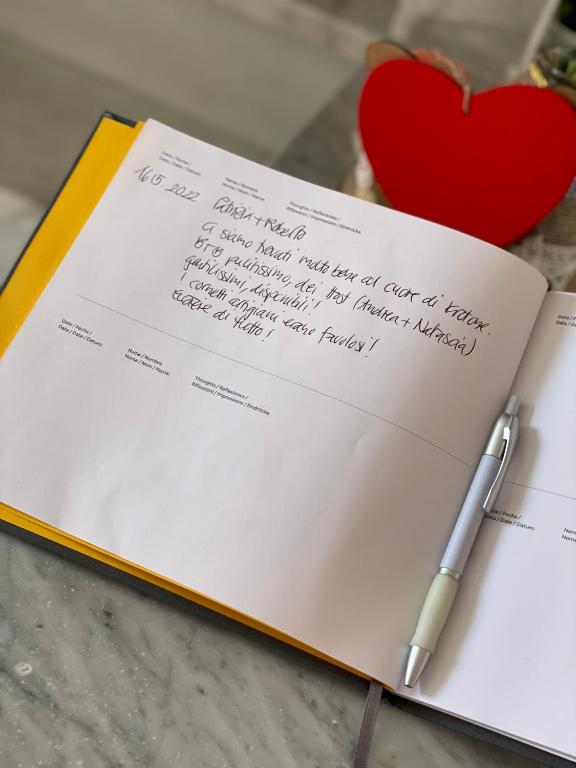 Data / Fecha /
Data / Date / Datum:
Name / Nombre
Nome / Nom / Name:
Thoughts / Reflexiones /
Riflessioni / Impressions / Eindrücke
16.5.2022
Patrizia + Roberto
Ci siamo trovati molto bene al Cuore di Krotone.
B+B pulitissimo, dei host (Andrea + Natascia)
gentilissimi, disponibili!
I cornetti artigiani erano favolosi!
Grazie di tutto!
Date / Fecha /
Data / Date / Datum:
Name / Nombre
Nome / Nom / Name:
Thoughts / Reflexiones /
Riflessioni / Impressions / Eindrücke
Date / Fecha /
Data / Date / Datum:
Name
Nome